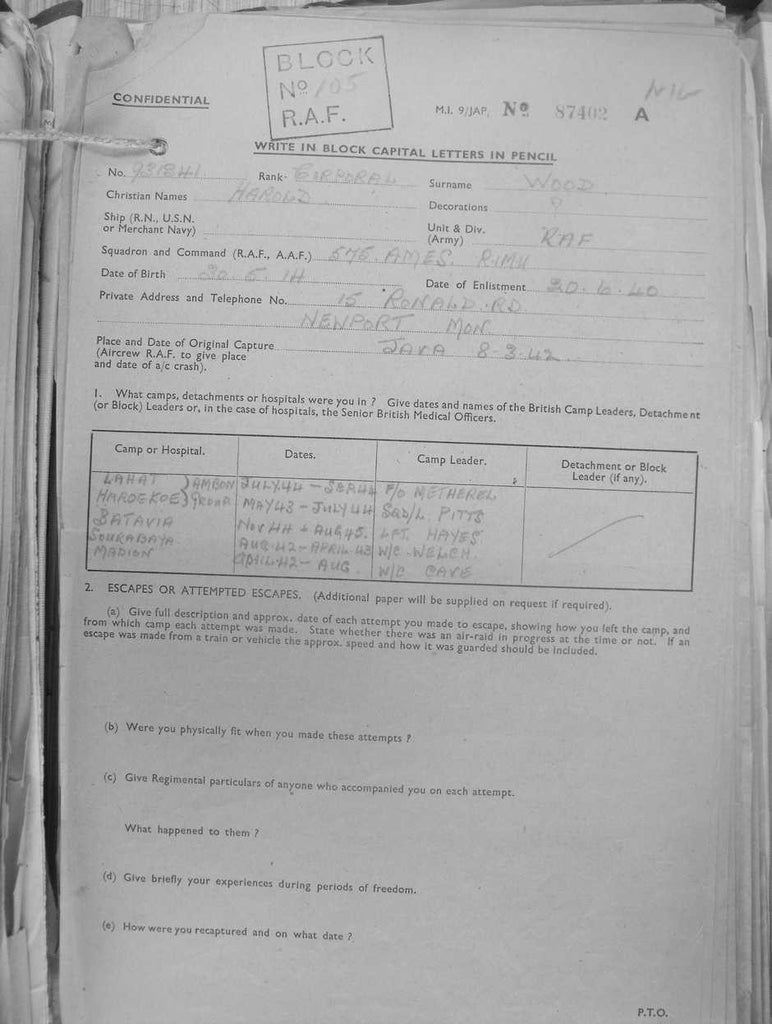 BLOCK
Nº 105
R.A.F.
NIL
CONFIDENTIAL
M.I. 9/JAP. Nº 87402 A
WRITE IN BLOCK CAPITAL LETTERS IN PENCIL
No. 931841 Rank- CORPORAL Surname WOOD
Christian Names HAROLD Decorations ?
Ship (R.N., U.S.N. or Merchant Navy)
Unit & Div. (Army) RAF
Squadron and Command (R.A.F., A.A.F.) 576. AMES. RIMU
Date of Birth 20.5.14 Date of Enlistment 20.6.40
Private Address and Telephone No. 15 RONALD. RD.
NEWPORT MON.
Place and Date of Original Capture JAVA 8-3-42
(Aircrew R.A.F. to give place
and date of a/c crash).
1. What camps, detachments or hospitals were you in ? Give dates and names of the British Camp Leaders, Detachment
(or Block) Leaders or, in the case of hospitals, the Senior British Medical Officers.
Camp or Hospital. Dates. Camp Leader. Detachment or Block Leader (if any).
LAHAT ) AMBON JULY 44 - SEP 44 F/O NETHEREL
HAROEKOE ) MAY 43 - JULY 44 SQD/L PITTS
BATAVIA NOV 44 - AUG 45. LFT. HAYES
SOURABAYA AUG-42-APRIL-43 W/C WELCH.
MADION APRIL-42-AUG W/C CAVE
2. ESCAPES OR ATTEMPTED ESCAPES. (Additional paper will be supplied on request if required).
(a) Give full description and approx. date of each attempt you made to escape, showing how you left the camp, and
from which camp each attempt was made. State whether there was an air-raid in progress at the time or not. If an
escape was made from a train or vehicle the approx. speed and how it was guarded should be included.
(b) Were you physically fit when you made these attempts ?
(c) Give Regimental particulars of anyone who accompanied you on each attempt.
What happened to them ?
(d) Give briefly your experiences during periods of freedom.
(e) How were you recaptured and on what date ?
P.T.O.